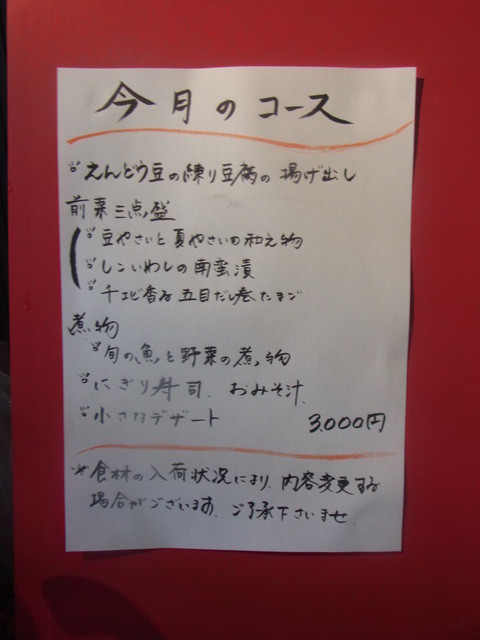 今月のコース
えんどう豆の練り豆腐の揚げ出し
前菜三点盛
豆やさいと夏やさいの和え物
しこいわしの南蛮漬
干エビ香る五目だし巻たまご
煮物
旬の魚と野菜の煮物
にぎり寿司、おみそ汁、
小さなデザート 3,000円
※食材の入荷状況により、内容変更する
場合がございます。ご了承下さいませ。